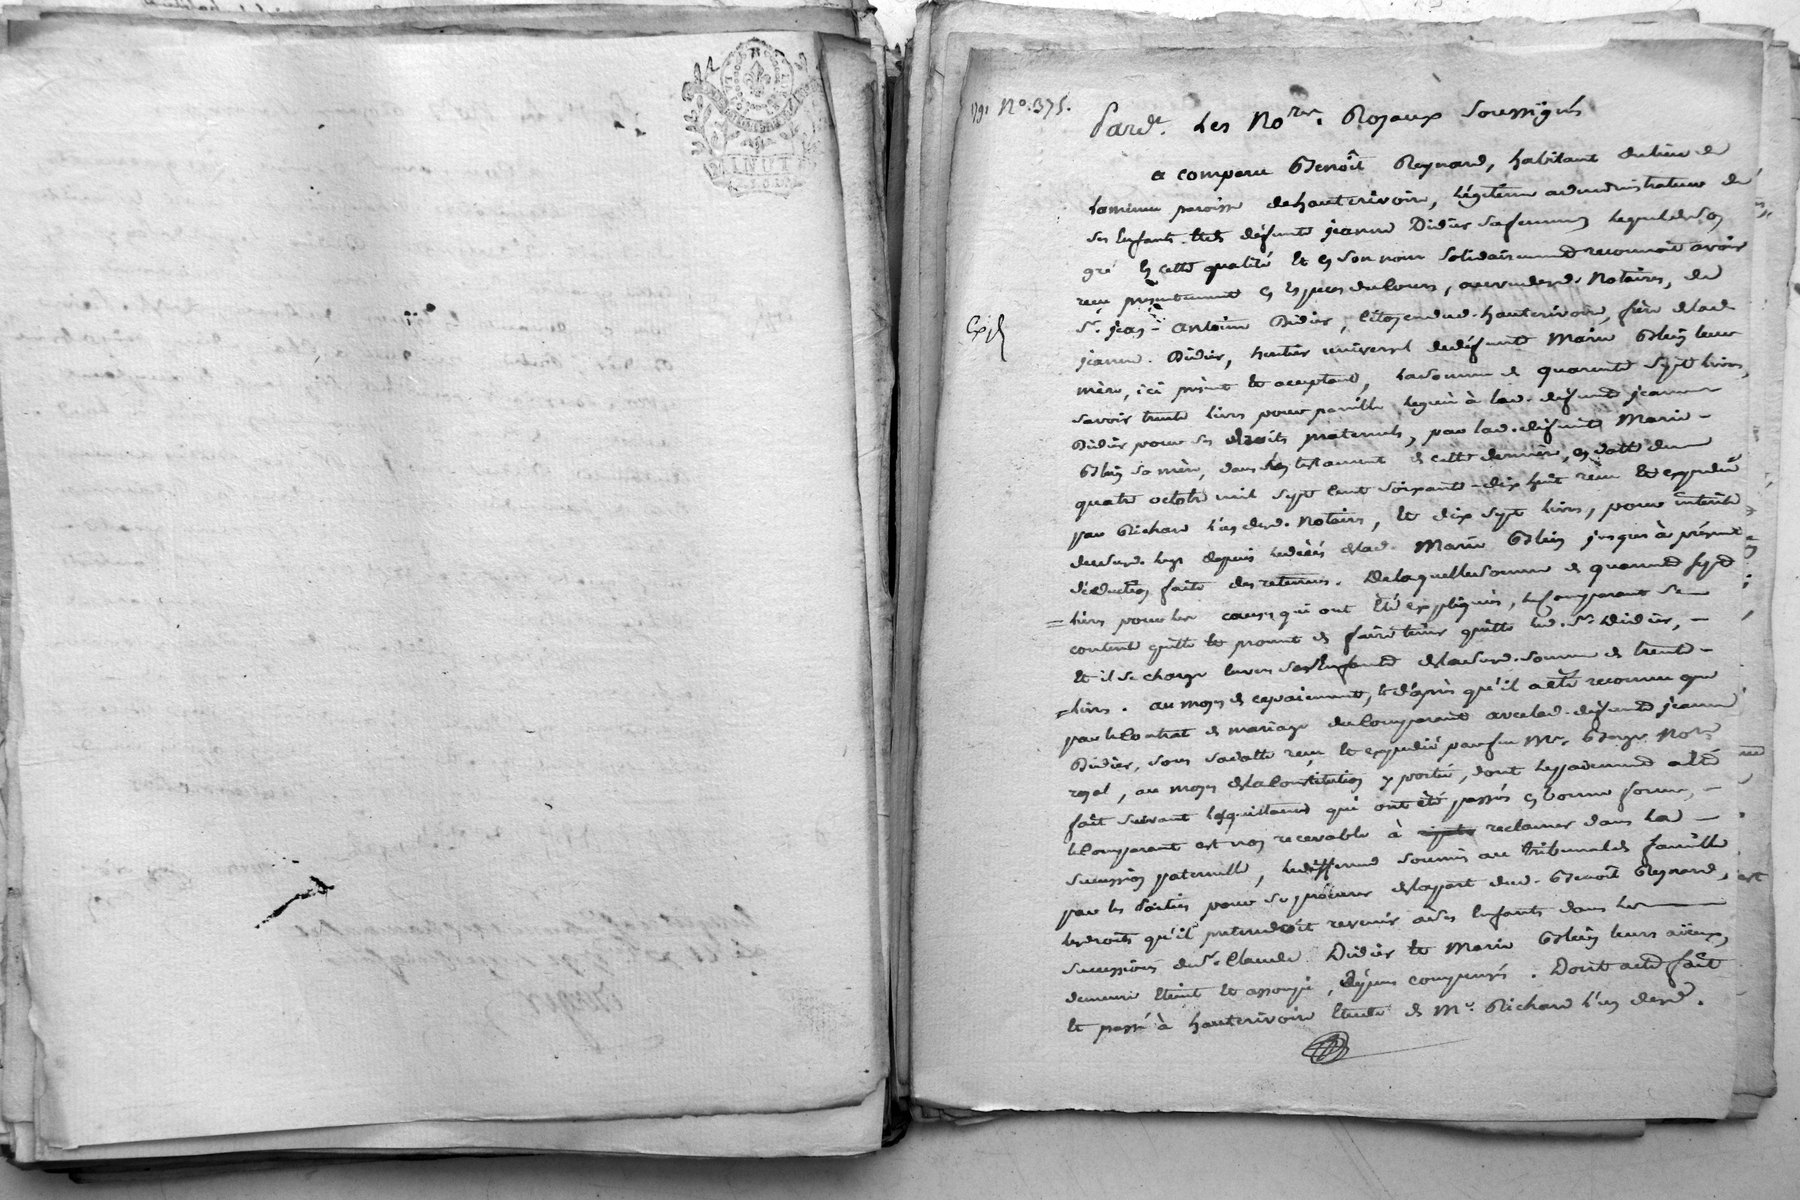 MINUT
1791 N.° 375.
Pard.t Les No.res Royaux Soussignés
a comparu Benoît Reynard, habitant du lieu de
paroisse de hauterivoire, Légitime administrateur de
ses Enfants & de défunte jeanne Didier sa femme, Lequel de son
gré En cette qualité Et en son nom solidairement reconnoit avoir
reçu présentement en Espèces de Cours, au vu desd. Notaires, de
S.r jean-Antoine Didier, Citoyen dud. hauterivoire, frère de lad.
jeanne Didier, heritier universel de défunte Marie Blein leur
mère, ici présent Et acceptant, la somme de quarente sept livres,
savoir trente livres pour pareille leguée à lad. défunte jeanne
Didier pour ses droits maternels, par lad. défunte Marie
Blein sa mère, dans le testament de cette dernière, en datte du
quatre octobre mil sept cent soixante-dix huit reçu Et expédié
par Richard L'un desd. Notaires, Et dix sept livres, pour intérêts
dud. legs depuis le décès de lad. Marie Blein jusques à présent
déduction faite des retenues. De laquelle somme de quarente sept
livres pour les causes qui ont été expliquées, le Comparant se
contente quitte Et promet de faire tenir quitte led. S.r Didier,
Et il se charge Envers ses Enfants de la susd. somme de trente
livres. au moyen de ce paiement, Et d'après qu'il a été reconnu que
par le Contrat de mariage du Comparant avec lad. défunte jeanne
Didier, sous sa datte reçu Et expédié par feu M.e No.re
royal, au moyen de la Constitution y portée, dont le paiement a été
fait suivant les quittances qui ont été passées en bonne forme,
le Comparant est non recevable à reclamer dans la
succession paternelle, le différend soumis au tribunal de famille
par les Parties pour se procurer de la part dud. Benoît Reynard,
les droits qu'il prétendroit revenir à ses Enfants dans les
successions du S.r Claude Didier Et Marie Blein leurs aïeux,
demeure Eteint Et assoupi, dépens compensés. Dont acte fait
Et passé à hauterivoire Etude de M.e Richard L'un desd.